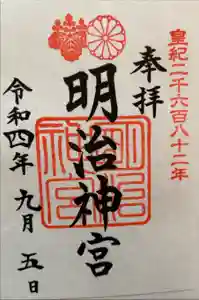 皇紀二千六百八十二年
奉拝
明治神宮
令和四年 九月 五日
明治神宮